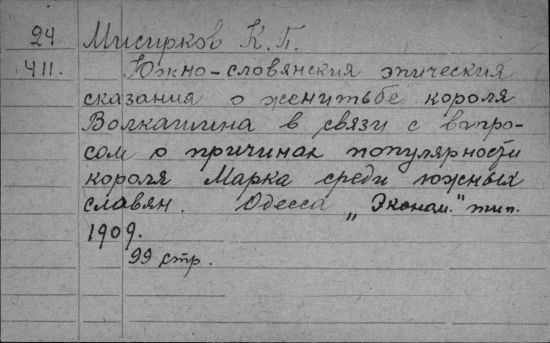 24 Мисирков К. П.
411. Южно-словянския эпическия
сказания о женитьбе короля
Волкашина в связи с вапро-
сом о причинах популярности
короля Марка среди южных
славян. Одесса „Эконом." тип.
1909.
99 стр.